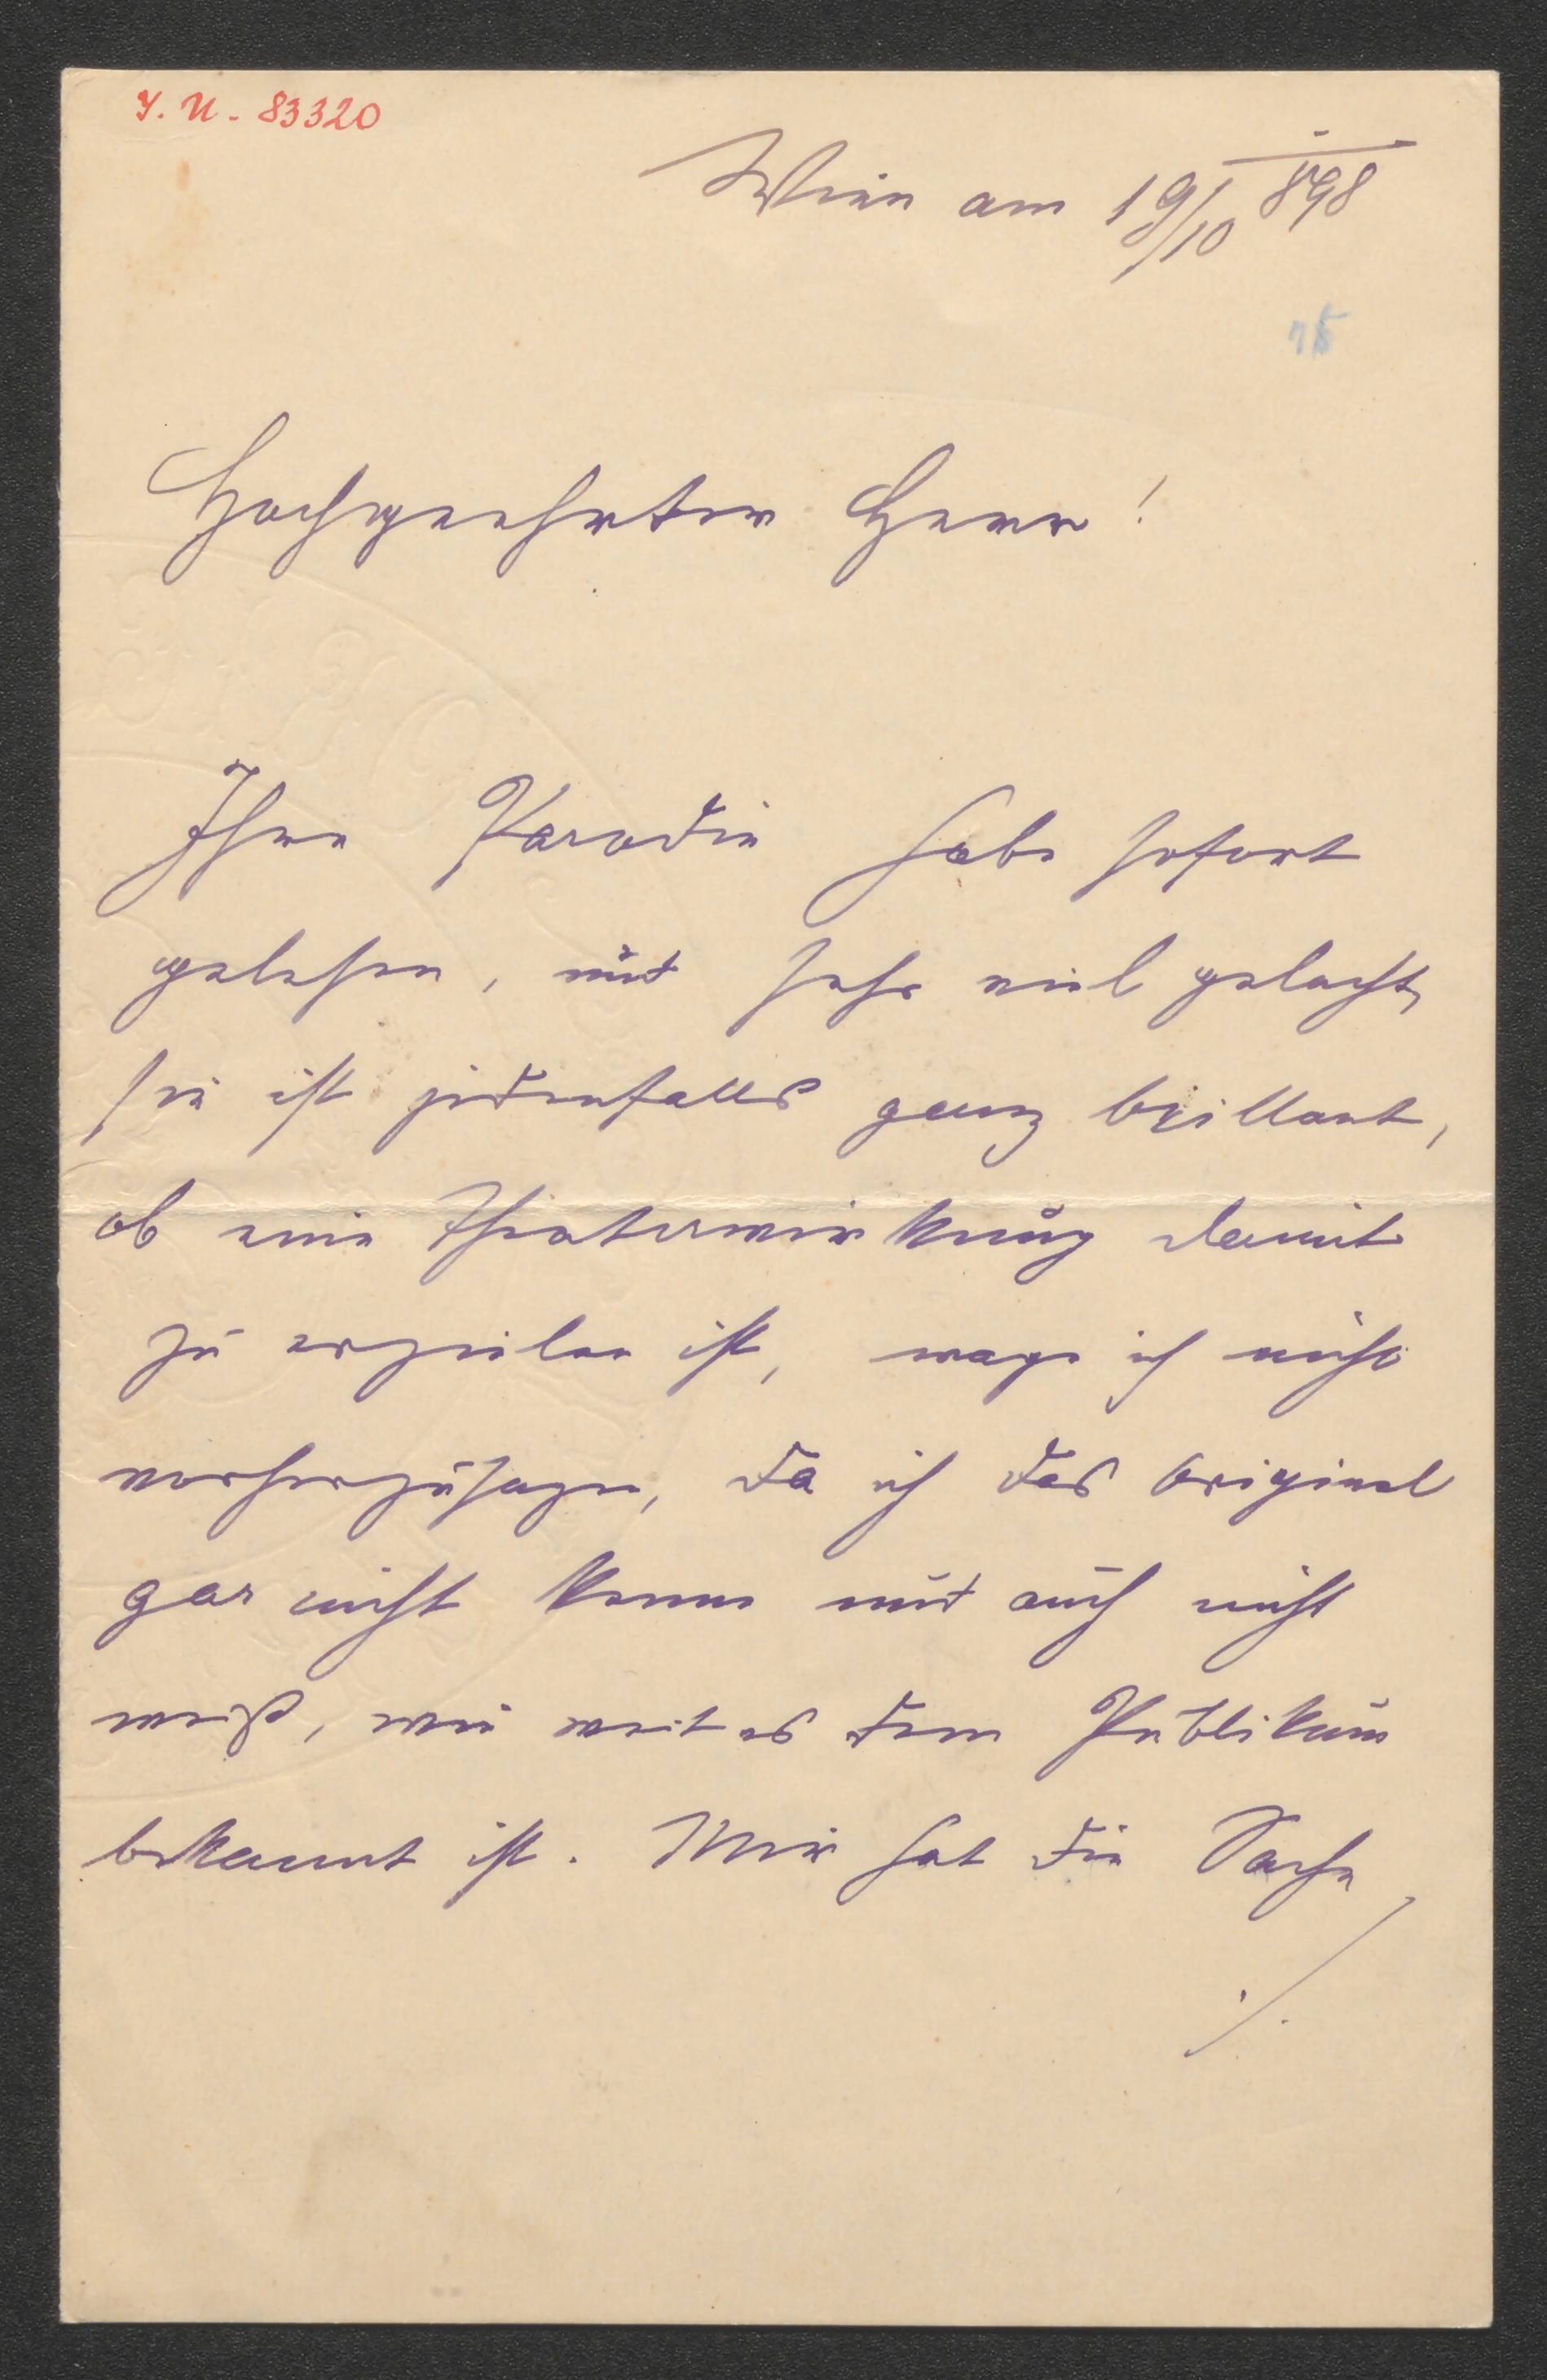 I. N. 83320
Wien am 19/10 898
15
Hochgeehrter Herr!
Ihre Parodie habe sofort
gelesen, und sehr viel gelacht,
sie ist jedenfalls ganz brillant,
ob eine Theaterwirkung damit
zu erzielen ist, wage ich nicht
vorherzusagen, da ich das Original
gar nicht kenne und auch nicht
weiß, wie weit es dem Publikum
bekannt ist. Mir hat die Sache
./.